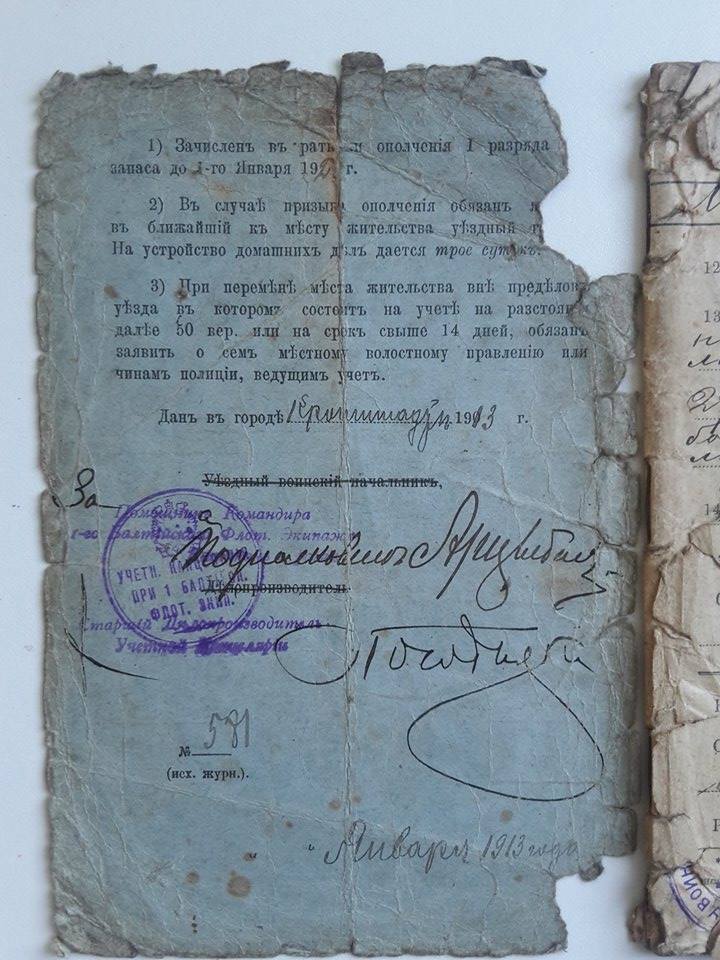 1) Зачисленъ въ рат и ополченія 1 разряда
запаса до 1-го Января 19 г.
2) Въ случаѣ призыва ополченія обязанъ
въ ближайшій къ мѣсту жительства уѣздный г
На устройство домашнихъ дѣлъ дается трое сутокъ.
3) При перемѣнѣ мѣста жительства внѣ предѣловъ
уѣзда въ которомъ состоитъ на учетѣ на разстояні
далѣе 50 вер. или на срокъ свыше 14 дней, обязанъ
заявить о семъ мѣстному волостному правленію или
чинамъ полиціи, ведущимъ учетъ.
Данъ въ городѣ Кронштадтѣ 1913 г.
Уѣздный воинскій начальникъ,
За
Помощника Командира
1-го Балтійскаго Флот. Экипажа
Подполковникъ
УЧЕТН. КАНЦ
ПРИ 1 БАЛТІЙСК.
ФЛОТ. ЭКИП.
Дѣлопроизводитель
Старшій Дѣлопроизводитель
Учетной Канцеляріи
№ 581
(исх. журн.).
" " Января 1913 года
12
13
14